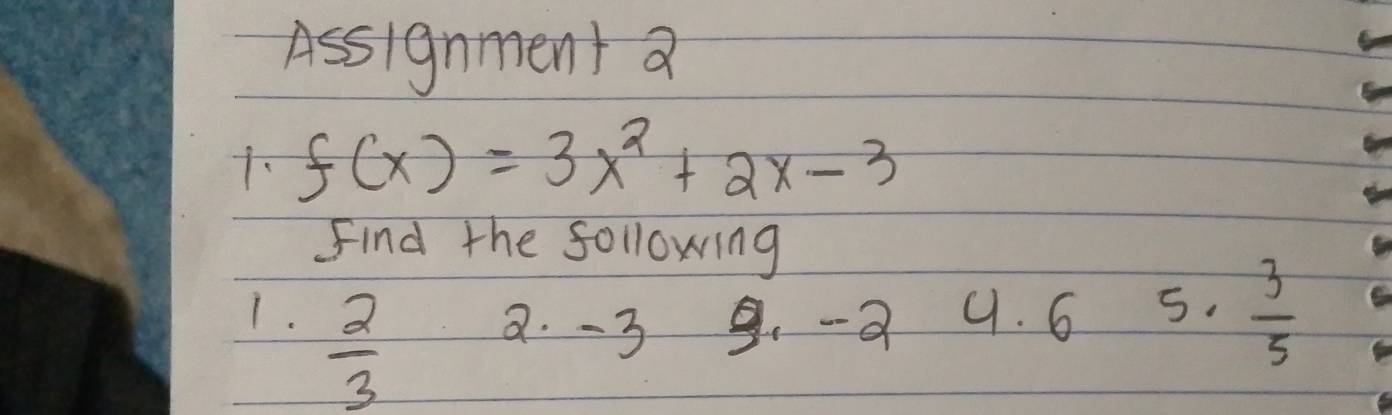 Assignment 2
1. f(x) = 3x² + 2x - 3
find the following
1. 2/3 2. -3 3. -2 4. 6 5. 3/5